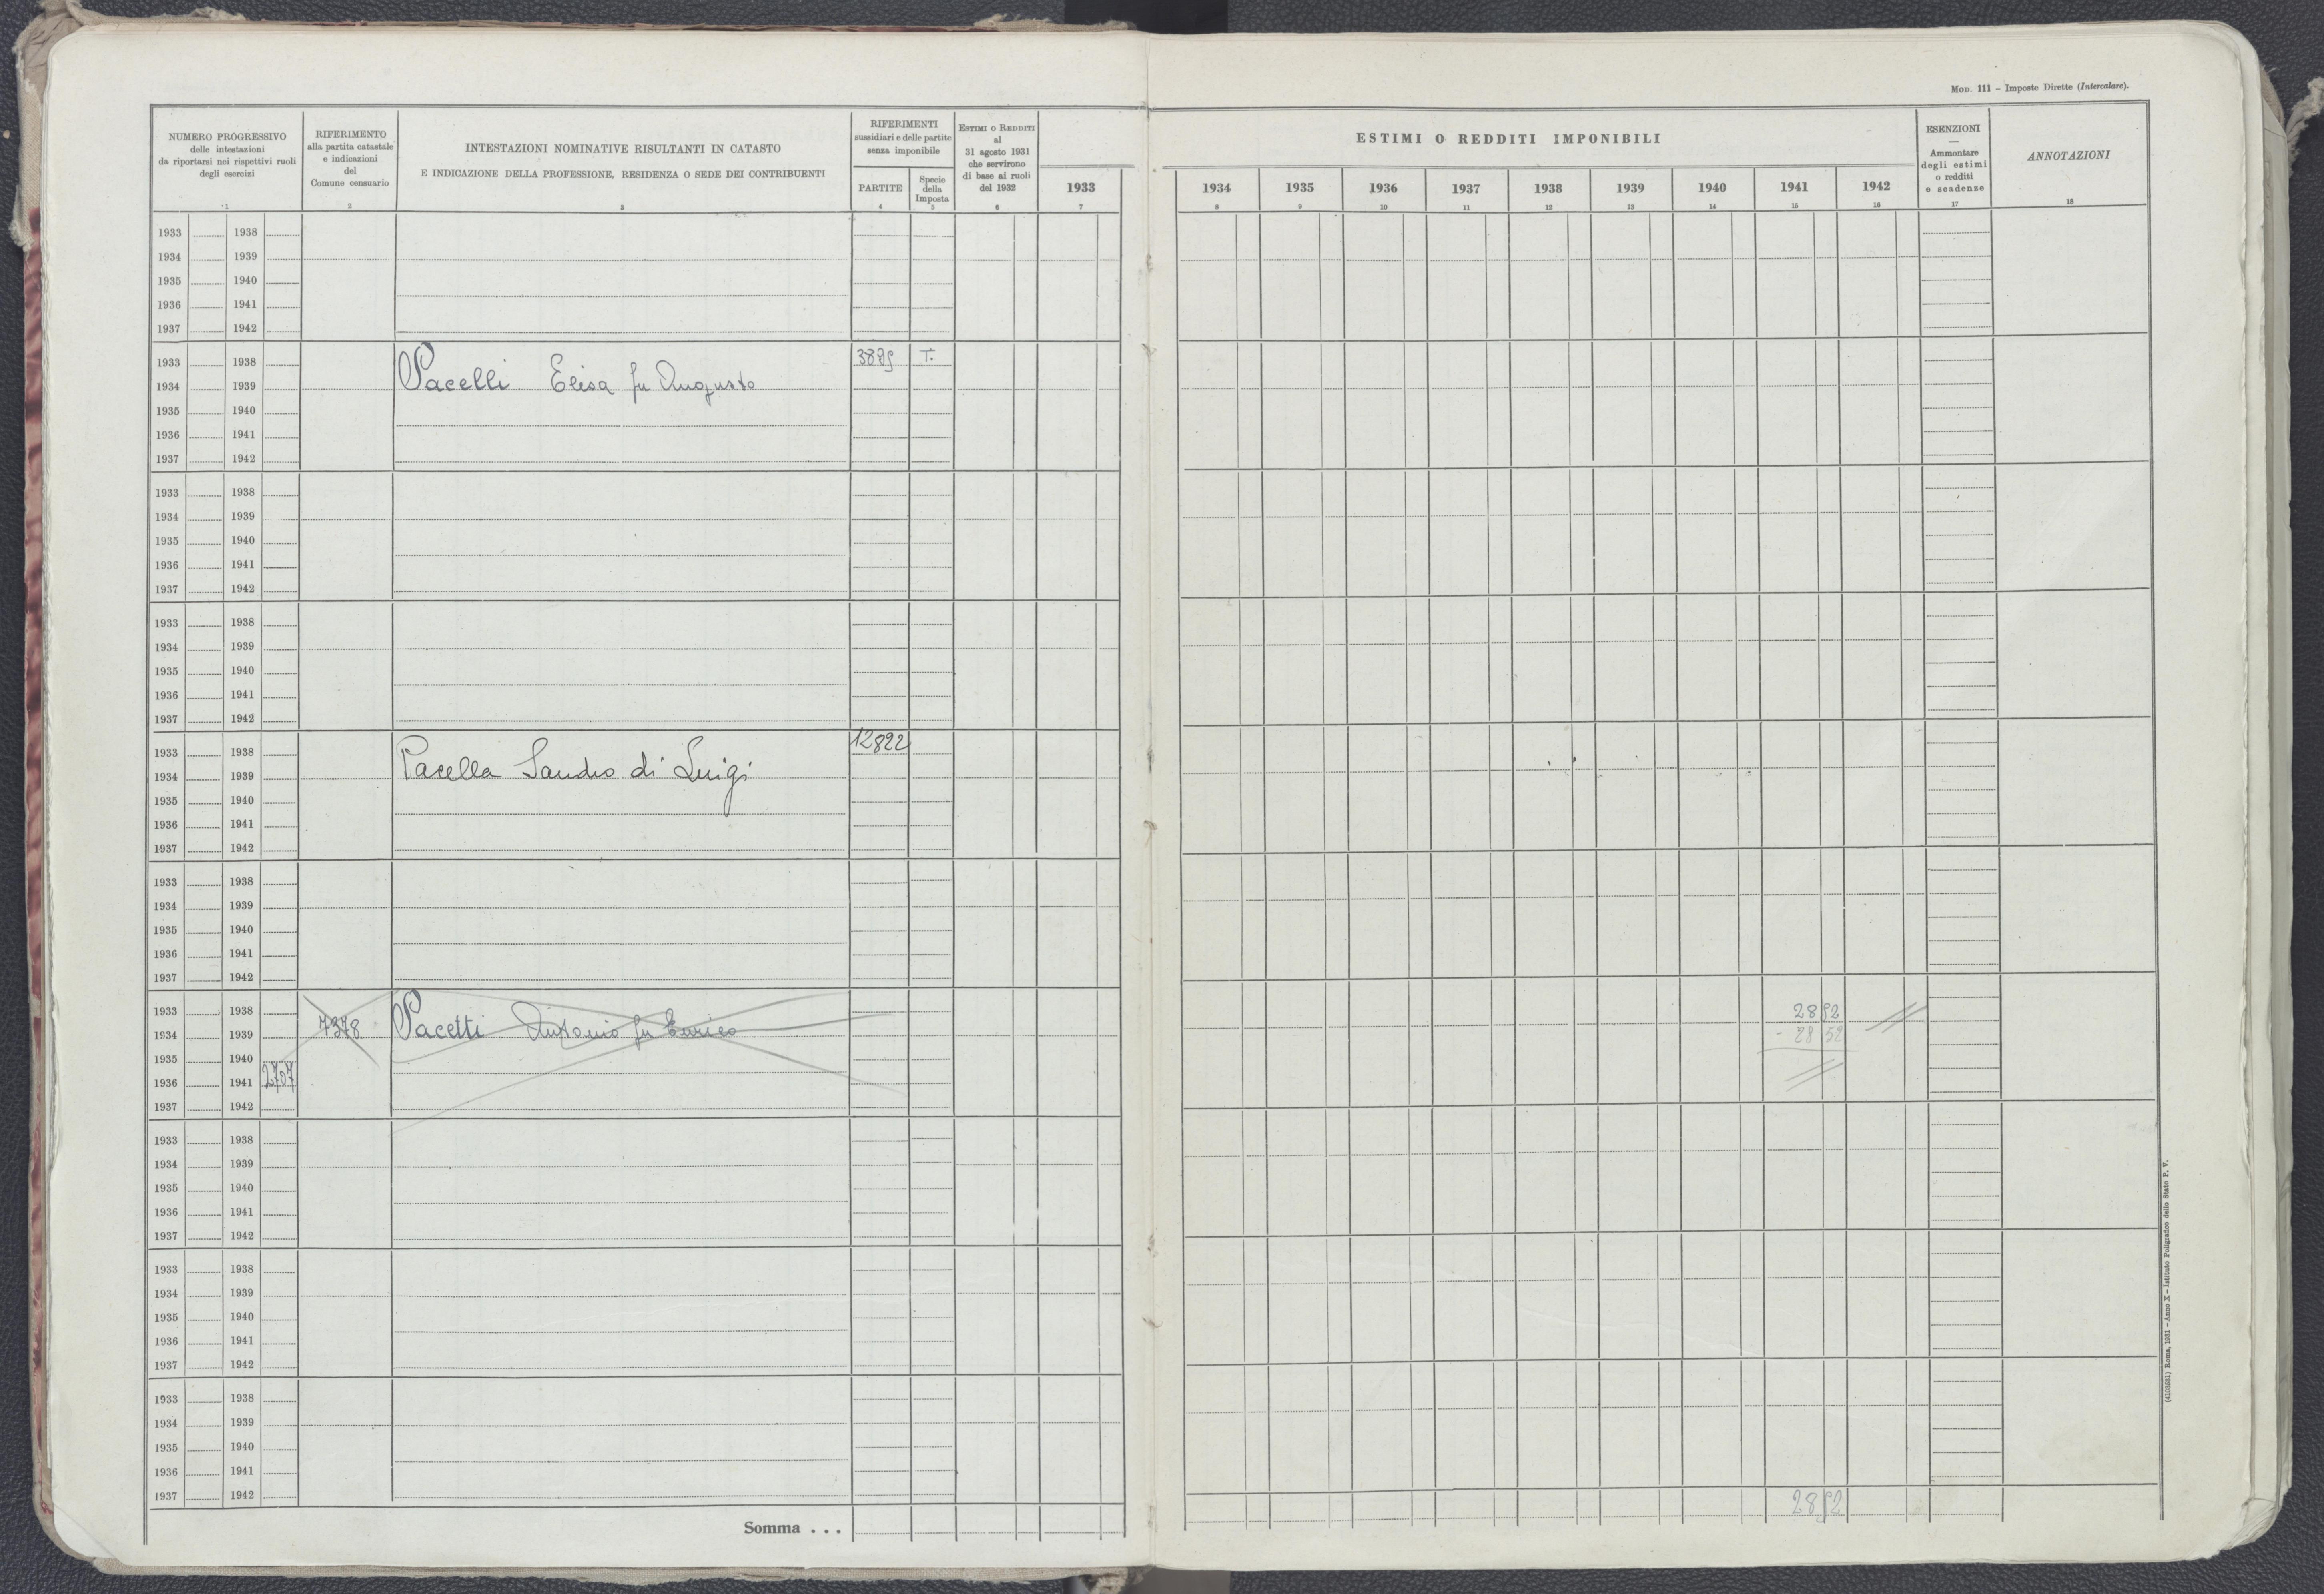 MOD. 111 – Imposte Dirette (Intercalare).
NUMERO PROGRESSIVO
delle intestazioni
da riportarsi nei rispettivi ruoli
degli esercizi
1
RIFERIMENTO
alla partita catastale
e indicazioni
del
Comune censuario
2
INTESTAZIONI NOMINATIVE RISULTANTI IN CATASTO
E INDICAZIONE DELLA PROFESSIONE, RESIDENZA O SEDE DEI CONTRIBUENTI
3
RIFERIMENTI
sussidiari e delle partite
senza imponibile
PARTITE
4
Specie
della
Imposta
5
ESTIMI O REDDITI
al
31 agosto 1931
che servirono
di base ai ruoli
del 1932
6
ESTIMI O REDDITI IMPONIBILI
1933 1934 1935 1936 1937 1938 1939 1940 1941 1942
7 8 9 10 11 12 13 14 15 16
ESENZIONI
—
Ammontare
degli estimi
o redditi
e scadenze
17
ANNOTAZIONI
18
1933 1938
1934 1939
1935 1940
1936 1941
1937 1942
1933 1938 T.
1934 1939 Pacelli Elisa fu Augusto
1935 1940
1936 1941
1937 1942
1933 1938
1934 1939
1935 1940
1936 1941
1937 1942
1933 1938
1934 1939
1935 1940
1936 1941
1937 1942
1933 1938 12822
1934 1939 Pacella Sandro di Luigi
1935 1940
1936 1941
1937 1942
1933 1938
1934 1939
1935 1940
1936 1941
1937 1942
1933 1938 28 52
1934 1939 7378 Pacetti Antonio fu Enrico - 28 52
1935 1940
1936 1941 2767
1937 1942
1933 1938
1934 1939
1935 1940
1936 1941
1937 1942
1933 1938
1934 1939
1935 1940
1936 1941
1937 1942
1933 1938
1934 1939
1935 1940
1936 1941
1937 1942
Somma . . . 28 52
(4103581) Roma, 1931 – Anno X – Istituto Poligrafico dello Stato P. V.